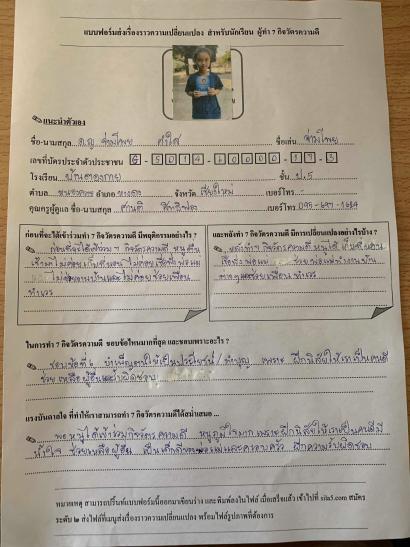 แบบฟอร์มส่งเรื่องราวความเปลี่ยนแปลง สำหรับนักเรียน ผู้ทำ 7 กิจวัตรความดี
แนะนำตัวเอง
ชื่อ-นามสกุล ด.ญ. คำใส ชื่อเล่น
เลขที่บัตรประจำตัวประชาชน
โรงเรียน ชั้น ป.5
ตำบล อำเภอ หางดง จังหวัด เชียงใหม่ เบอร์โทร -
คุณครูผู้ดูแล ชื่อ-นามสกุล เบอร์โทร
ก่อนที่จะได้เข้าร่วมทำ 7 กิจวัตรความดี มีพฤติกรรมอย่างไร ?
ก่อนที่จะได้เข้าร่วม 7 กิจวัตรความดี หนูตื่น
ไม่ค่อยเก็บที่นอน ไม่ค่อยเชื่อฟังพ่อแม่
ไม่ช่วยงานบ้านและไม่ค่อยช่วยเพื่อน
ทำเวร
และหลังทำ 7 กิจวัตรความดี มีการเปลี่ยนแปลงอย่างไรบ้าง ?
หลังทำ 7 กิจวัตรความดี หนูได้เก็บที่นอน
เชื่อฟังพ่อแม่ ช่วยพ่อแม่ทำงานบ้าน
ช่วยเพื่อนทำเวร
ในการทำ 7 กิจวัตรความดี ชอบข้อไหนมากที่สุด และชอบเพราะอะไร ?
ชอบข้อที่ 6 บำเพ็ญตนให้เป็นประโยชน์ / ทำบุญ เพราะ ฝึกนิสัยให้เราเป็นคนดี
ช่วยเหลือผู้อื่นและรับผิดชอบ
แรงบันดาลใจ ที่ทำให้เราสามารถทำ 7 กิจวัตรความดีได้สม่ำเสมอ ...
พอหนูได้เข้าร่วมกิจวัตรความดี หนูภูมิใจมาก เพราะฝึกนิสัยให้เราเป็นคนดีมี
น้ำใจ ช่วยเหลือผู้อื่น เป็นเด็กดีของพ่อแม่และครอบครัว ฝึกความรับผิดชอบ
หมายเหตุ สามารถปริ้นท์แบบฟอร์มนี้ออกมาเขียนร่าง และพิมพ์ลงในไฟล์ เมื่อเสร็จแล้ว เข้าไปที่ sila5.com สมัคร
ระดับ ๒ ส่งไฟล์ที่เมนูส่งเรื่องราวความเปลี่ยนแปลง พร้อมไฟล์รูปภาพที่ต้องการ